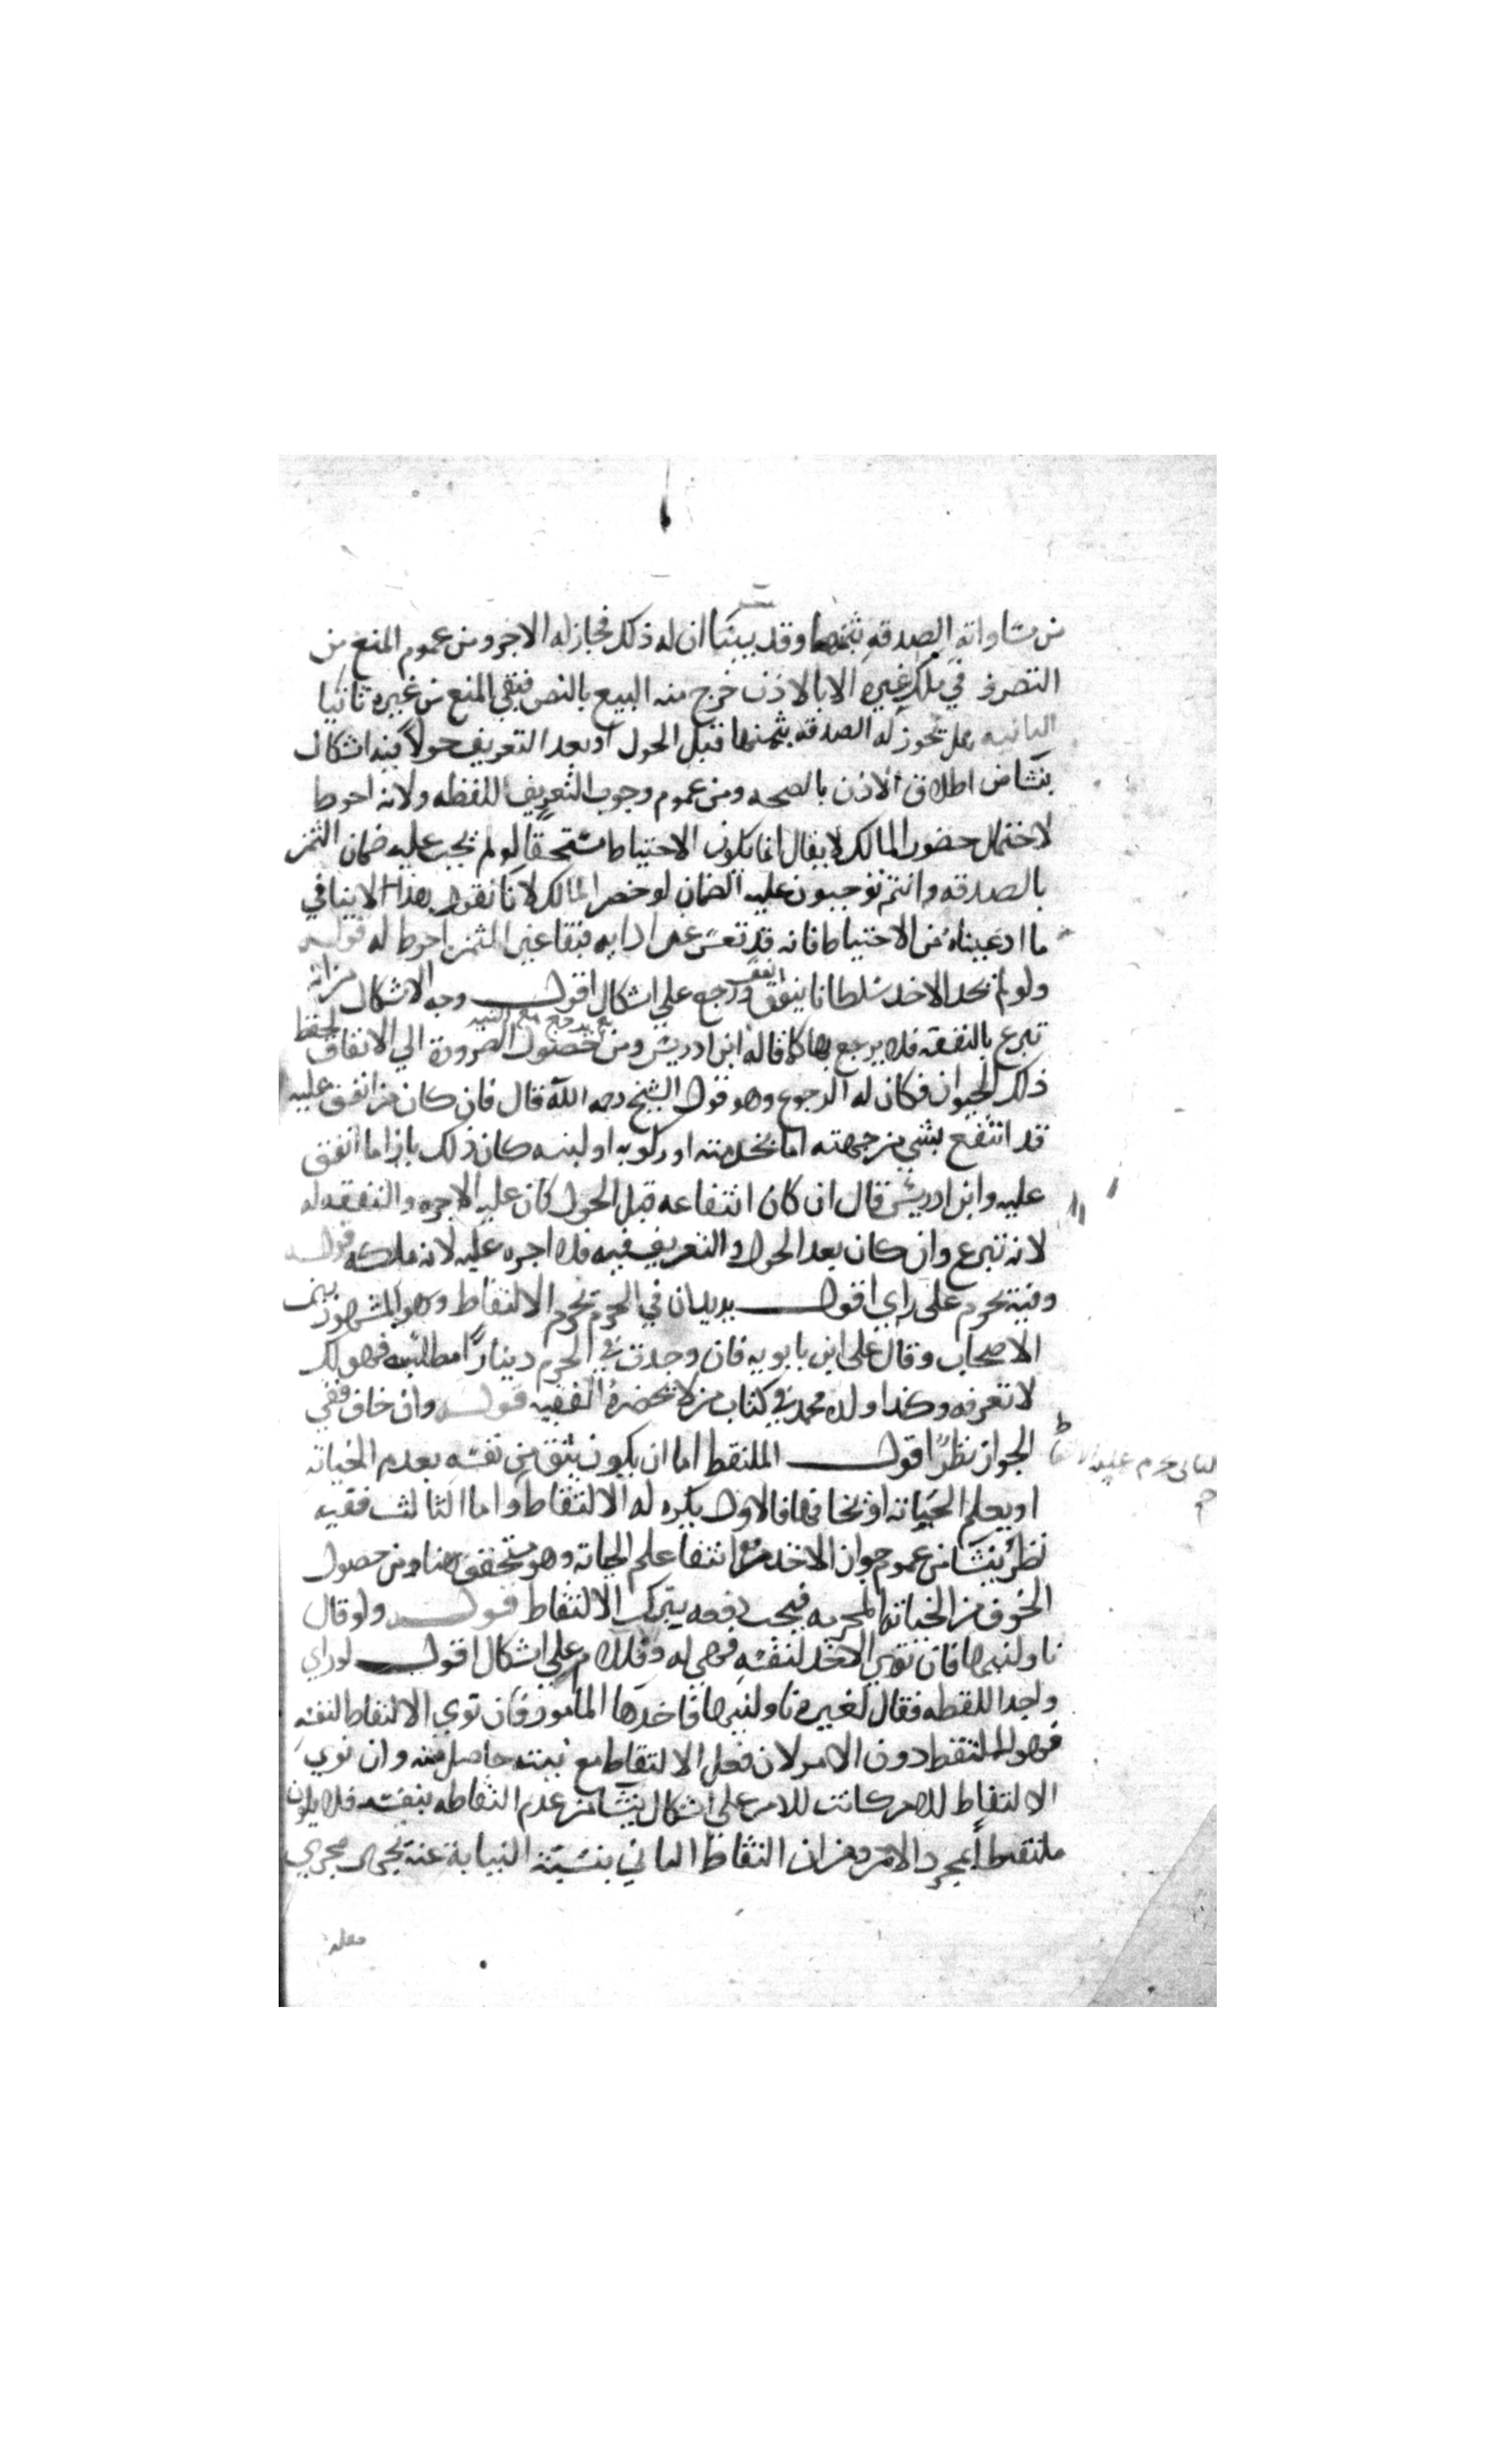 من مساواته الصدقه بثمنها وقد بينا ان له ذلك فجاز له الاخر ومن عموم المنع من
التصرف في ملك غيره الا بالاذن خرج منه البيع بالنص فبقي المنع من غيره ثانيا
الثانيه هل تجوز له الصدقه بثمنها قبل الحول او بعد التعريف حولاً فيه اشكال
ينشا من اطلاق الاذن بالصحه ومن عموم وجوب التعريف اللقطه ولانه احوط
لاحتمال حضور المالك لا يقال انما يكون الاحتياط مستحقا لو لم يجب عليه ضمان الثمن
بالصدقه وانتم توجبون عليه الضمان لو حضر المالك لانا نقول هذا لا ينافي
ما ادعيناه من الاحتياط فانه قد تعسر عن ادايه فبقا عين الثمن احوط له قوله
ولو لم يجد الاخذ سلطانا ينفق انفق ورجع علي اشكال اقول وجه الاشكال من انه
تبرع بالنفقه فلا يرجع بها كما قاله ابن ادريس ومن حصول الضرورة الي الانفاق لحفظ
ذلك الحيوان فكان له الرجوع وهو قول الشيخ رحمه الله قال فان كان من انفق عليه
قد انتفع بشي من جهته اما بخدمته او ركوبه او لبنه كان ذلك بازا ما انفق
عليه وابن ادريس قال ان كان انتفاعه قبل الحول كان عليه الاجره والنفقه له
لانه تبرع وان كان بعد الحول والتعريف فيه فلا اجره عليه لانه ملكه قوله
وفيه يحرم على راي اقول يريد ان في الحرم تحريم الالتقاط وهو المشهور بين
الاصحاب وقال علي ابن بابويه فان وجدت في الحرم ديناراً مطلسا فهو لك
لا تعرفه وكذا ولده محمد في كتاب من لا يحضره الفقيه قوله وان خاف ففي
الجواز نظر اقول الملتقط اما ان يكون يثق من نفسه بعدم الخيانه
او يعلم الخيانه او يخافها فالاول يكره له الالتقاط واما الثالث ففيه
نظر ينشا من عموم جواز الاخذ مع انتفا علم الخيانه وهو متحقق هنا ومن حصول
الخوف من الخيانه المحرمه فيجب دفعه بترك الالتقاط قوله ولو قال
ناولنيها فان نوي الاخذ لنفسه فهي له والا فللامر علي اشكال اقول لو راي
واحد اللقطه فقال لغيره ناولنيها فاخذها المامور فان نوي الالتقاط لنفسه
فهو الملتقط دون الامر لان فعل الالتقاط مع نيته حاصل منه وان نوي
الالتقاط للامر كانت للامر علي اشكال ينشا من عدم التقاطه بنفسه فلا يكون
ملتقطاً بمجرد الامر ومن ان التقاط الثاني بنية النيابة عنه يجري مجري
الثاني حرم عليه الالتقاط